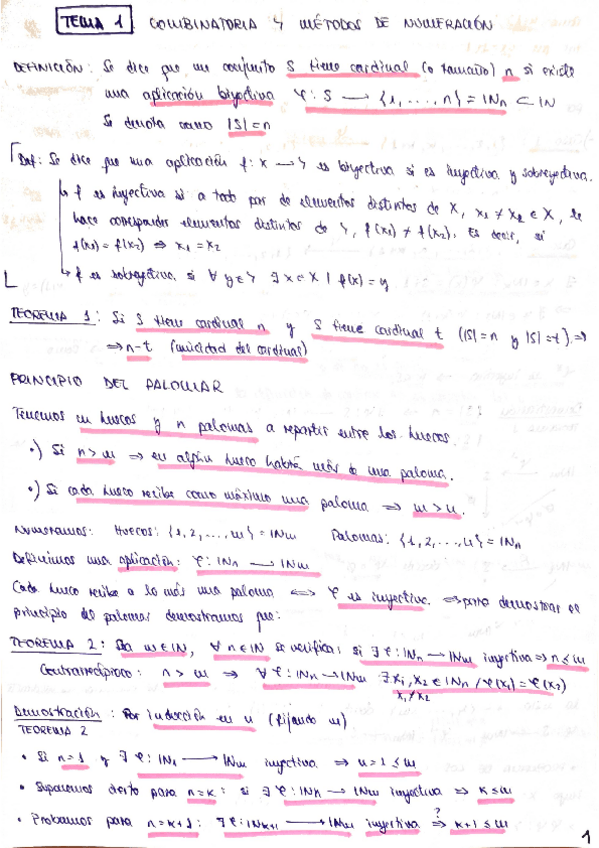 TEMA 1 COMBINATORIA Y MÉTODOS DE NUMERACIÓN
DEFINICIÓN: Se dice que un conjunto S tiene cardinal (o tamaño) n si existe
una aplicación biyectiva φ: S → {1, ..., n} = ℕn ⊂ ℕ
Se denota como |S| = n
Def: Se dice que una aplicación f: X → Y es biyectiva si es inyectiva y sobreyectiva.
↳ f es inyectiva si a todo par de elementos distintos de X, x₁ ≠ x₂ ∈ X, le
hace corresponder elementos distintos de Y, f(x₁) ≠ f(x₂). Es decir, si
f(x₁) = f(x₂) ⇒ x₁ = x₂
↳ f es sobreyectiva si ∀ y ∈ Y ∃ x ∈ X | f(x) = y
TEOREMA 1: Si S tiene cardinal n y S tiene cardinal t (|S| = n y |S| = t) ⇒
⇒ n = t (unicidad del cardinal)
PRINCIPIO DEL PALOMAR
Tenemos m huecos y n palomas a repartir entre los huecos.
•) Si n > m ⇒ en algún hueco habrá más de una paloma.
•) Si cada hueco recibe como máximo una paloma ⇒ m > n.
Numeramos: Huecos: {1, 2, ..., m} = ℕm Palomas: {1, 2, ..., n} = ℕn
Definimos una aplicación: φ: ℕn → ℕm
Cada hueco recibe a lo más una paloma ⟺ φ es inyectiva. ⇒ para demostrar el
principio del palomar demostramos que:
TEOREMA 2: Sea m ∈ ℕ, ∀ n ∈ ℕ se verifica: si ∃ φ: ℕn → ℕm inyectiva ⇒ n ≤ m
Contrarrecíproco: n > m ⇒ ∀ φ: ℕn → ℕm ∃ x₁, x₂ ∈ ℕn / φ(x₁) = φ(x₂)
x₁ ≠ x₂
Demostración: Por inducción en n (fijando m)
TEOREMA 2
• Si n = 1 y ∃ φ: ℕ1 → ℕm inyectiva ⇒ n = 1 ≤ m
• Suponemos cierto para n = k: si ∃ φ: ℕk → ℕm inyectiva ⇒ k ≤ m
• Probamos para n = k+1: ∃ φ: ℕk+1 → ℕm inyectiva ⇒? k+1 ≤ m
1